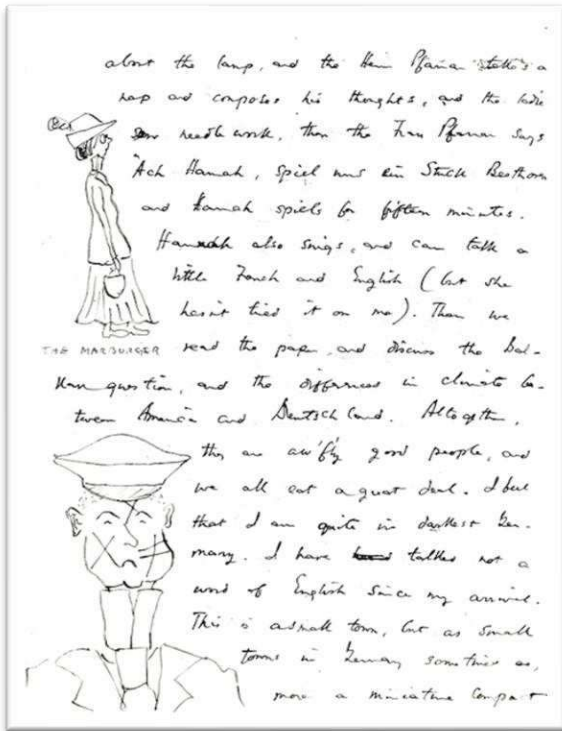 about the lamp, and the Herr Pfarrer takes a
nap and composes his thoughts, and the ladies
needlework, then the Frau Pfarrer says
"Ach Hannah, spiel uns ein Stück Beethoven
and Hannah spiels for fifteen minutes.
Hannah also sings, and can talk a
little French and English (but she
hasn't tried it on me). Then we
read the paper, and discuss the Bal-
kan question, and the differences in climate be-
tween America and Deutschland. Altogether,
they are awf'ly good people, and
we all eat a great deal. I feel
that I am quite in darkest Ger-
many. I have talked not a
word of English since my arrival.
This is a small town, but as small
towns in Germany sometimes are,
more a miniature compact
THE MARBURGER